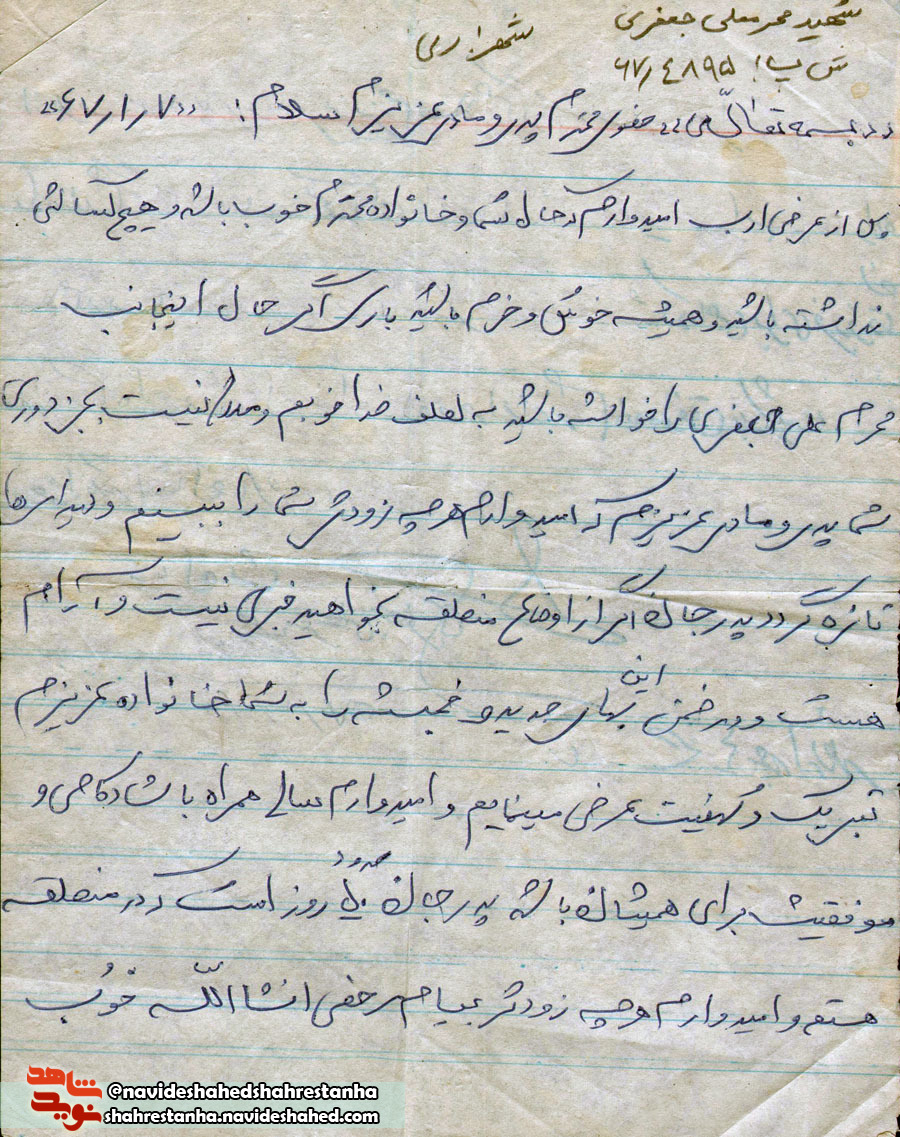 شهید محرمعلی جعفری
شهر: ری
ش پ: ۶۷٫۴۸۹۵
«بسمه تعالی» حضور محترم پدر و مادر عزیزم سلام: «۷ر۱ر۶۷»
پس از عرض ادب امیدوارم که حال شما و خانواده محترم خوب باشد و هیچ کسالتی
نداشته باشید و همیشه خوش و خرم باشید باری اگر حال اینجانب
محرم علی جعفری را خواسته باشید به لطف خدا خوبم و ملالی نیست بجز دوری
شما پدر و مادر عزیزم که امیدوارم هرچه زودتر شما را ببینم و دیدارها
تازه گردد پدر جان اگر از اوضاع منطقه بخواهید خبری نیست و آرام
هست و در ضمن این بهار جدید و خجسته را به شما خانواده عزیزم
تبریک و تهنیت عرض مینمایم و امیدوارم سالی همراه با شادکامی و
موفقیت برای همیشان باشد پدر جان حدود روز است که در منطقه
هستم و امیدوارم هرچه زودتر بیام مرخصی انشاالله خوب
شاهد
نوید
@navideshahedshahrestanha
shahrestanha.navideshahed.com